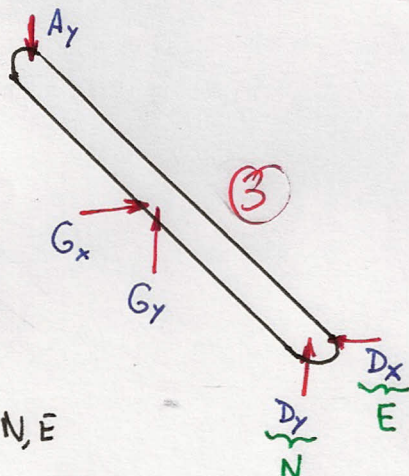 Ay
3
Gx
Gy
Dx
E
Dy
N
N, E